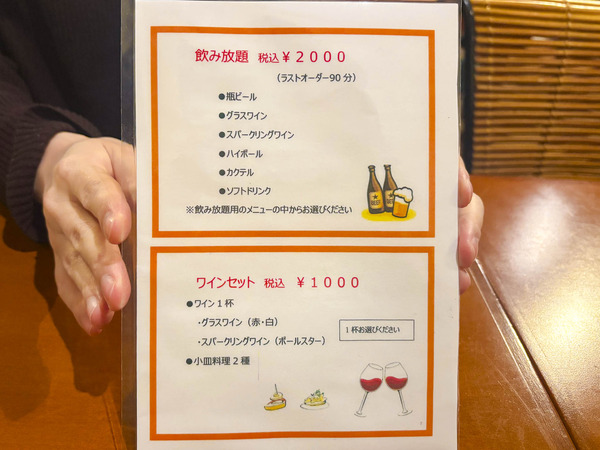 飲み放題 税込 ¥2000
(ラストオーダー90分)
●瓶ビール
●グラスワイン
●スパークリングワイン
●ハイボール
●カクテル
●ソフトドリンク
※飲み放題用のメニューの中からお選びください
ワインセット 税込 ¥1000
●ワイン1杯
・グラスワイン(赤・白)
・スパークリングワイン(ポールスター)
1杯お選びください
●小皿料理2種